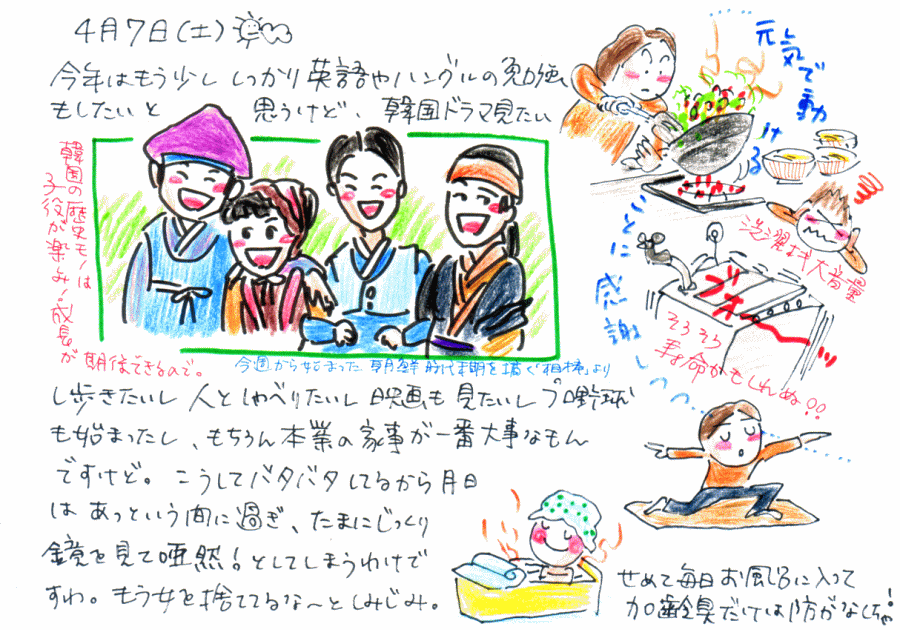 4月7日(土)
今年はもう少ししっかり英語やハングルの勉強
もしたいと思うけど、韓国ドラマ見たい
韓国の歴史モノは
子役が楽しみ!成長が
期待できるので。
今週から始まった朝鮮時代末期を描く"相棒"より
し歩きたいし人としゃべりたいし映画も見たいしプロ野球
も始まったし、もちろん本業の家事が一番大事なもん
ですけど。こうしてバタバタしてるから月日
はあっという間に過ぎ、たまにじっくり
鏡を見て唖然!としてしまうわけで
すわ。もう女を捨ててるな〜としみじみ。
元気で動
ける
ことに感謝しつつ…
洗濯なぜ大音量
ブオーーッ
そろそろ
寿命かもしれぬ!!
せめて毎日お風呂に入って
加齢臭だけは防がなくちゃ!